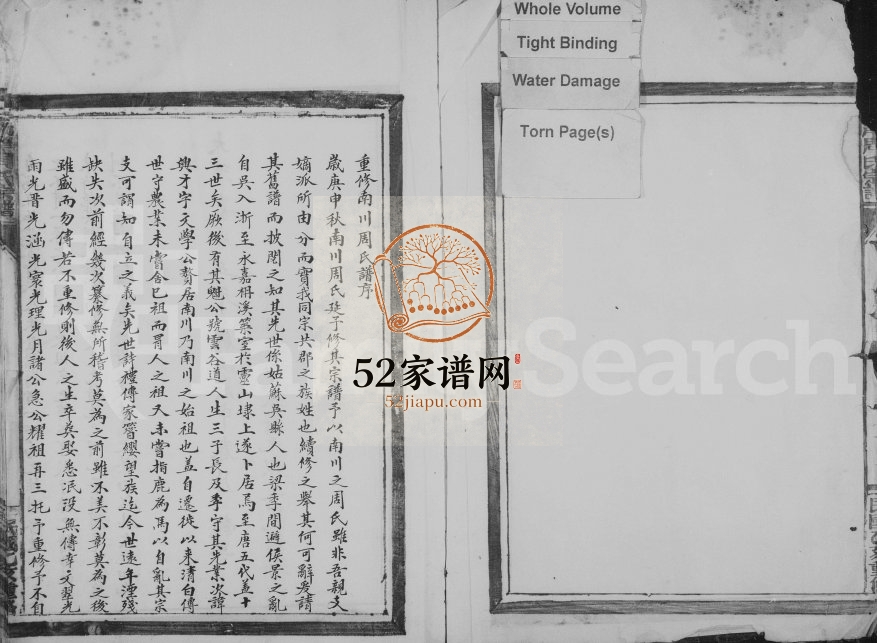 Whole Volume
Tight Binding
Water Damage
Torn Page(s)
重修南川周氏譜序
歲庚申秋南川周氏延予修其宗譜予以南川之周氏雖非吾親支
嫡派所由分而實我同宗共郡之族姓也續修之舉其何可辭爰請
其舊譜而披閱之知其先世係姑蘇吳縣人也梁季間避侯景之亂
自吳入浙至永嘉枏溪築室於靈山埭上遂卜居焉至唐五代蓋十
三世矣厥後有其魁公號雲谷道人生三子長及季守其先業次諱
興才字文學公贅居南川乃南川之始祖也蓋自遷徙以來清白傳
世守農業未嘗舍己祖而冒人之祖又未嘗指鹿為馬以自亂其宗
支可謂知自立之義矣先世詩禮傳家簪纓望族迄今世遠年湮殘
缺失次前經幾次纂修無所稽考莫為之前雖不美不彰莫為之後
雖盛而勿傳若不重修則後人之生卒莫娶悉泯沒無傳幸文翟光
雨光晋光涵光寰光理光月諸公急公耀祖再三托予重修予不自
52家谱网
52jiapu.com
Search